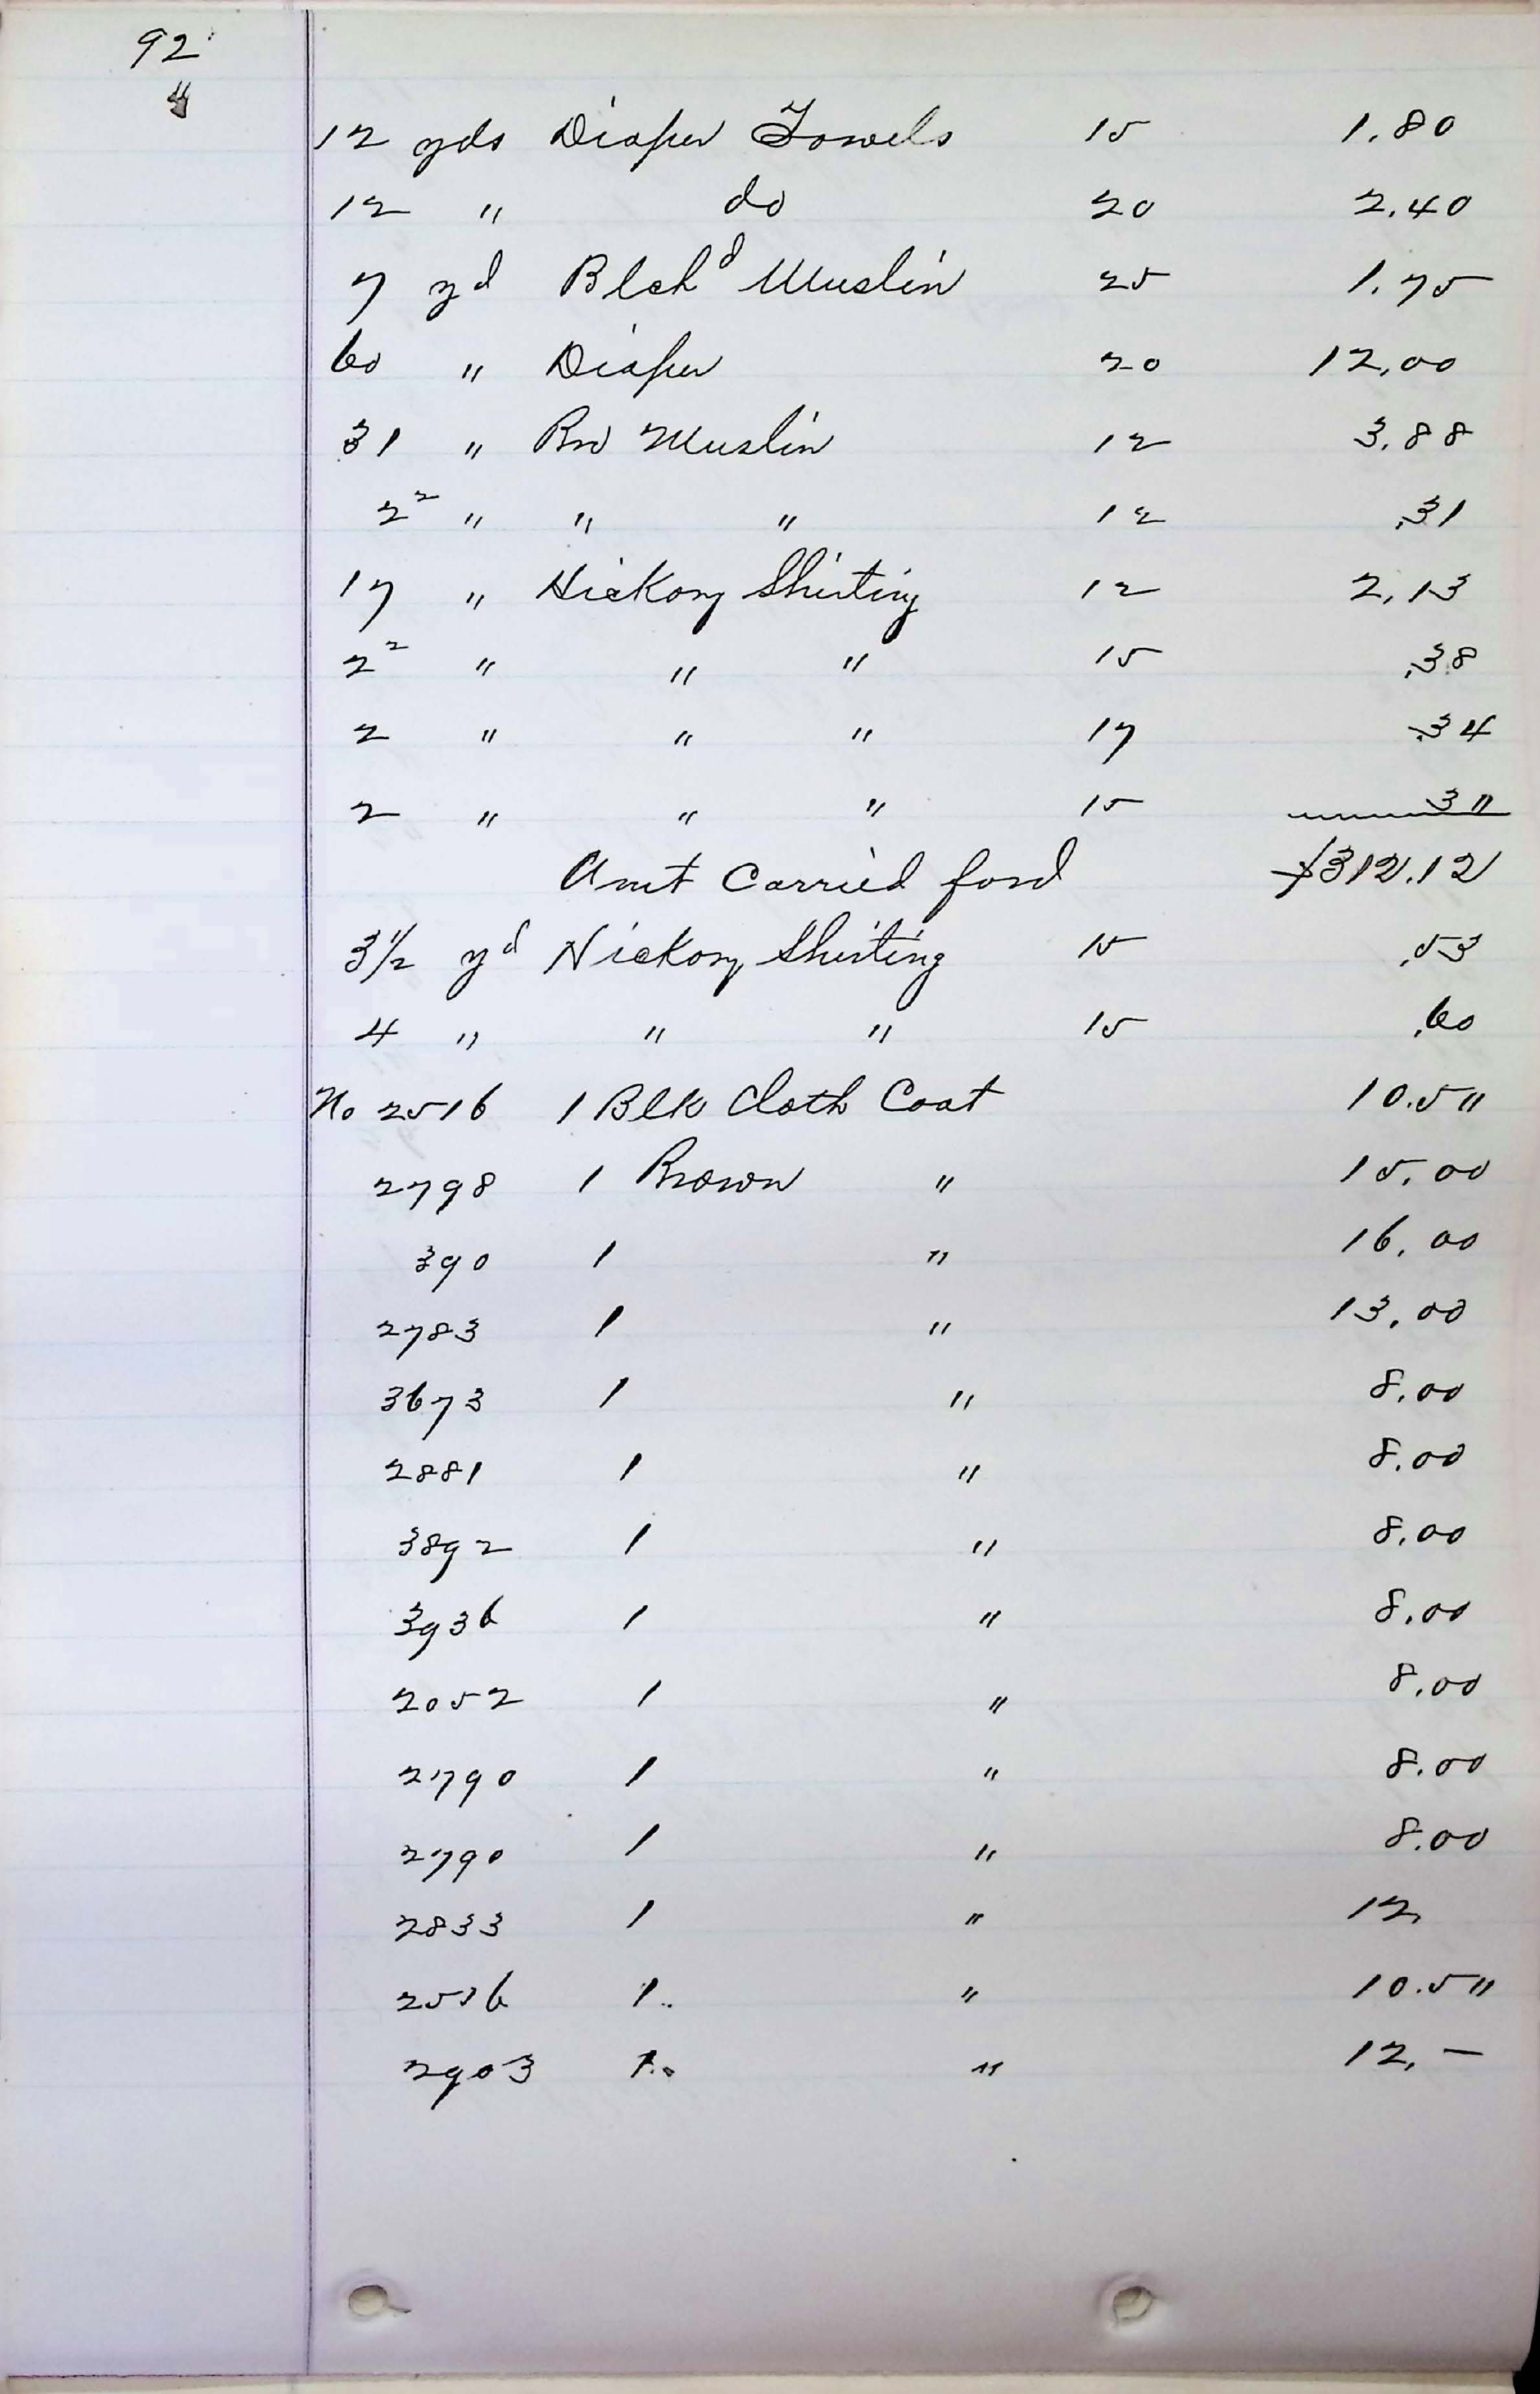 92
"
12 yds Diaper Towels 15 1.80
12 " do 20 2.40
7 yd Blchd Muslin 25 1.75
60 " Diaper 20 12.00
31 " Bro Muslin 12 3.88
2² " " " 12 .31
17 " Hickory Shirting 12 2.13
2² " " " 15 .38
2 " " " 17 .34
2 " " " 15 3"
Amt Carried ford $312.12
3 1/2 yd Hickory Shirting 15 .53
4 " " " 15 .60
No 2516 1 Blk Cloth Coat 10.5"
2798 1 Brown " 15.00
390 1 " 16.00
2783 1 " 13.00
3673 1 " 8.00
2881 1 " 8.00
3892 1 " 8.00
3936 1 " 8.00
2052 1 " 8.00
2790 1 " 8.00
2790 1 " 8.00
2833 1 " 12,
2516 1 " 10.5"
2903 1 " 12,—